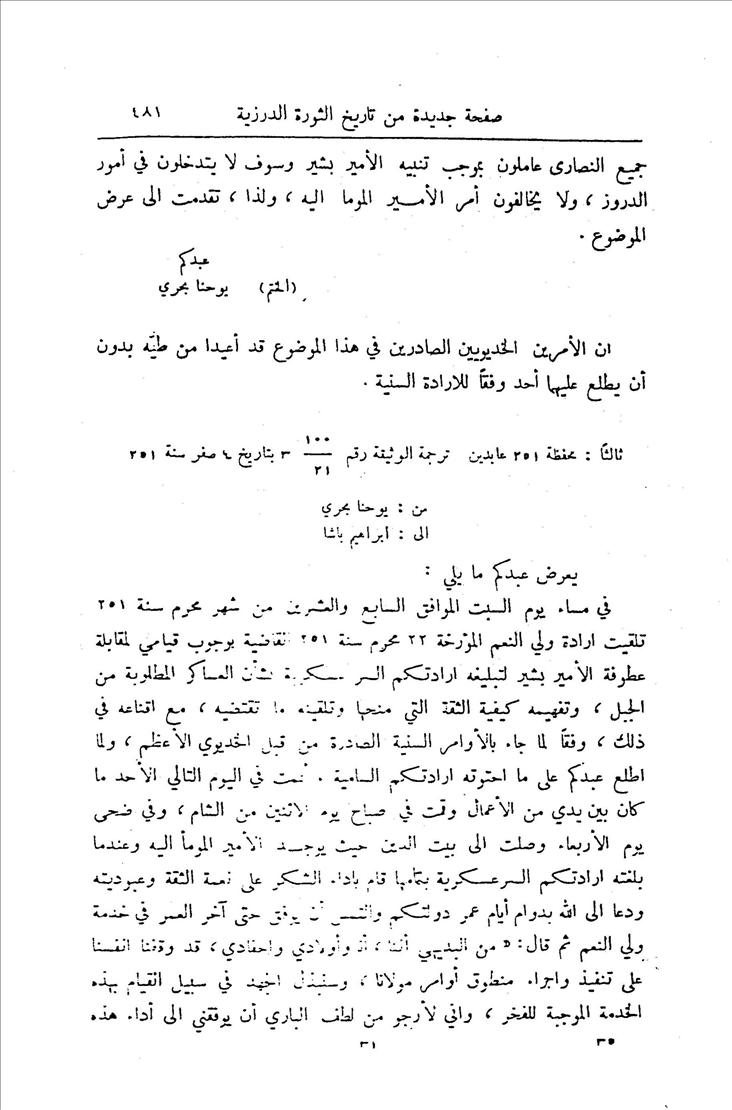 صفحة جديدة من تاريخ الثورة الدرزية ٤٨١
جميع النصارى عاملون بموجب تنبيه الأمير بشير وسوف لا يتدخلون في أمور
الدروز ، ولا يخالفون أمر الأمير الموما اليه ، ولذا ، تقدمت الى عرض
الموضوع .
عبدكم
(الختم) يوحنا بحري
ان الأمرين الخديويين الصادرين في هذا الموضوع قد أعيدا من طيَّه بدون
أن يطلع عليها أحد وفقاً للارادة السنية .
ثالثاً : محفظة ٢٥١ عابدين ترجمة الوثيقة رقم ١٠٠/٢١ ٣ بتاريخ ٤ صفر سنة ٢٥١
من : يوحنا بحري
الى : ابراهيم باشا
يعرض عبدكم ما يلي :
في مساء يوم السبت الموافق السابع والعشرين من شهر محرم سنة ٢٥١
تلقيت ارادة ولي النعم المؤرخة ٢٢ محرم سنة ٢٥١ القاضية بوجوب قيامي لمقابلة
عطوفة الأمير بشير لتبليغه ارادتكم السر عسكرية بشأن العساكر المطلوبة من
الجبل ، وتفهيمه كيفية الثقة التي منحها وتلقينه ما تقتضيه ، مع اقناعه في
ذلك ، وفقاً لما جاء بالأوامر السنية الصادرة من قبل الخديوي الأعظم ، ولما
اطلع عبدكم على ما احتوته ارادتكم السامية . تمت في اليوم التالي الأحد ما
كان بين يدي من الأعمال وقمت في صباح يوم الاثنين من الشام ، وفي ضحى
يوم الأربعاء وصلت الى بيت الدين حيث يوجد الأمير المومأ اليه وعندما
بلغته ارادتكم السرعسكرية بتمامها قام باداء الشكر على نعمة الثقة وعبوديته
ودعا الى الله بدوام أيام عمر دولتكم والتمس أن يوفق حتى آخر العمر في خدمة
ولي النعم ثم قال : « من البديهي أننا ، أنا وأولادي واحفادي ، قد وقفنا انفسنا
على تنفيذ واجراء منطوق أوامر مولانا ، وسنبذل الجهد في سبيل القيام بهذه
الخدمة الموجبة للفخر ، واني لأرجو من لطف الباري أن يوفقني الى أداء هذه
٣١ ٣٥